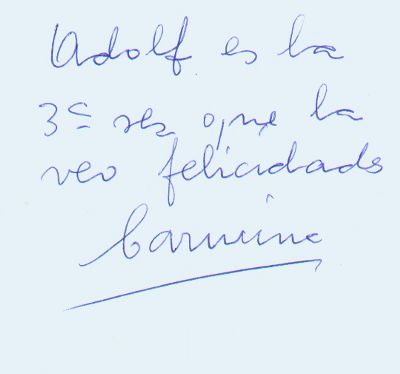 Adolf es la
3ª vez que la
veo felicidads
Carmine